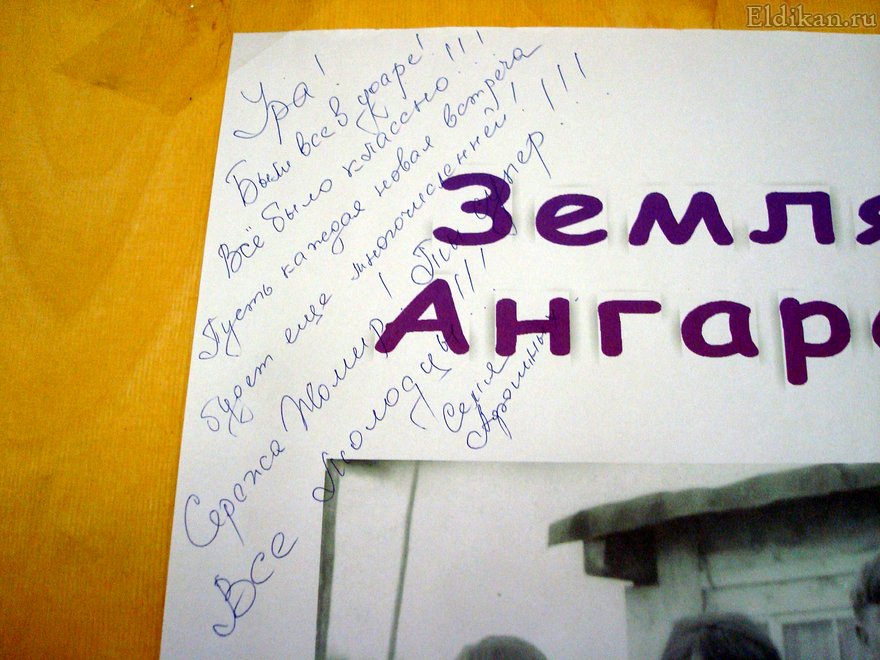 Eldikan.ru
Ура!
Были все в ударе!
Всё было классно!!!
Пусть каждая новая встреча
будет еще многочисленней!!!!
Сережа ! Ты супер...
Все молодцы!!!!
Семья
Земля
Ангар